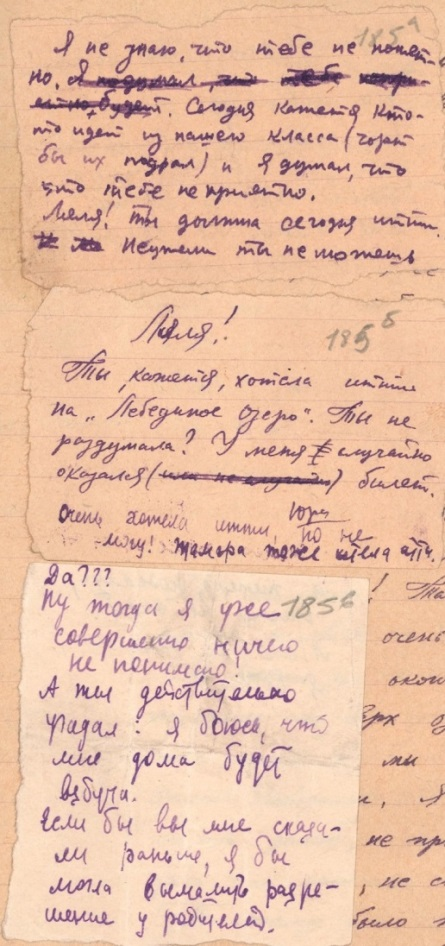 185а
Я не знаю, что тебе не понят-
но. Я подумал, что тебе непри-
ятно будет. Сегодня кажется кто-
то идет из нашего класса (чорт
бы их подрал) и я думал, что
что тебе неприятно.
Ляля! Ты должна сегодня итти.
Неужели ты не можешь
Ляля!
185б
Ты, кажется, хотела итти
на „Лебединое Озеро". Ты не
раздумала? У меня случайно
оказался (или не случайно) билет.
Юра
очень хотела итти, но не
могу! Тамара тоже
Да???
Ну тогда я уже
185б
совершенно ничего
не понимаю!
А ты действительно
угадал: я боюсь, что
мне дома будет
взбуча.
Если бы вы мне сказа-
ли раньше, я бы
могла вымолить разре-
шение у родителей.
очень
мы
не
было